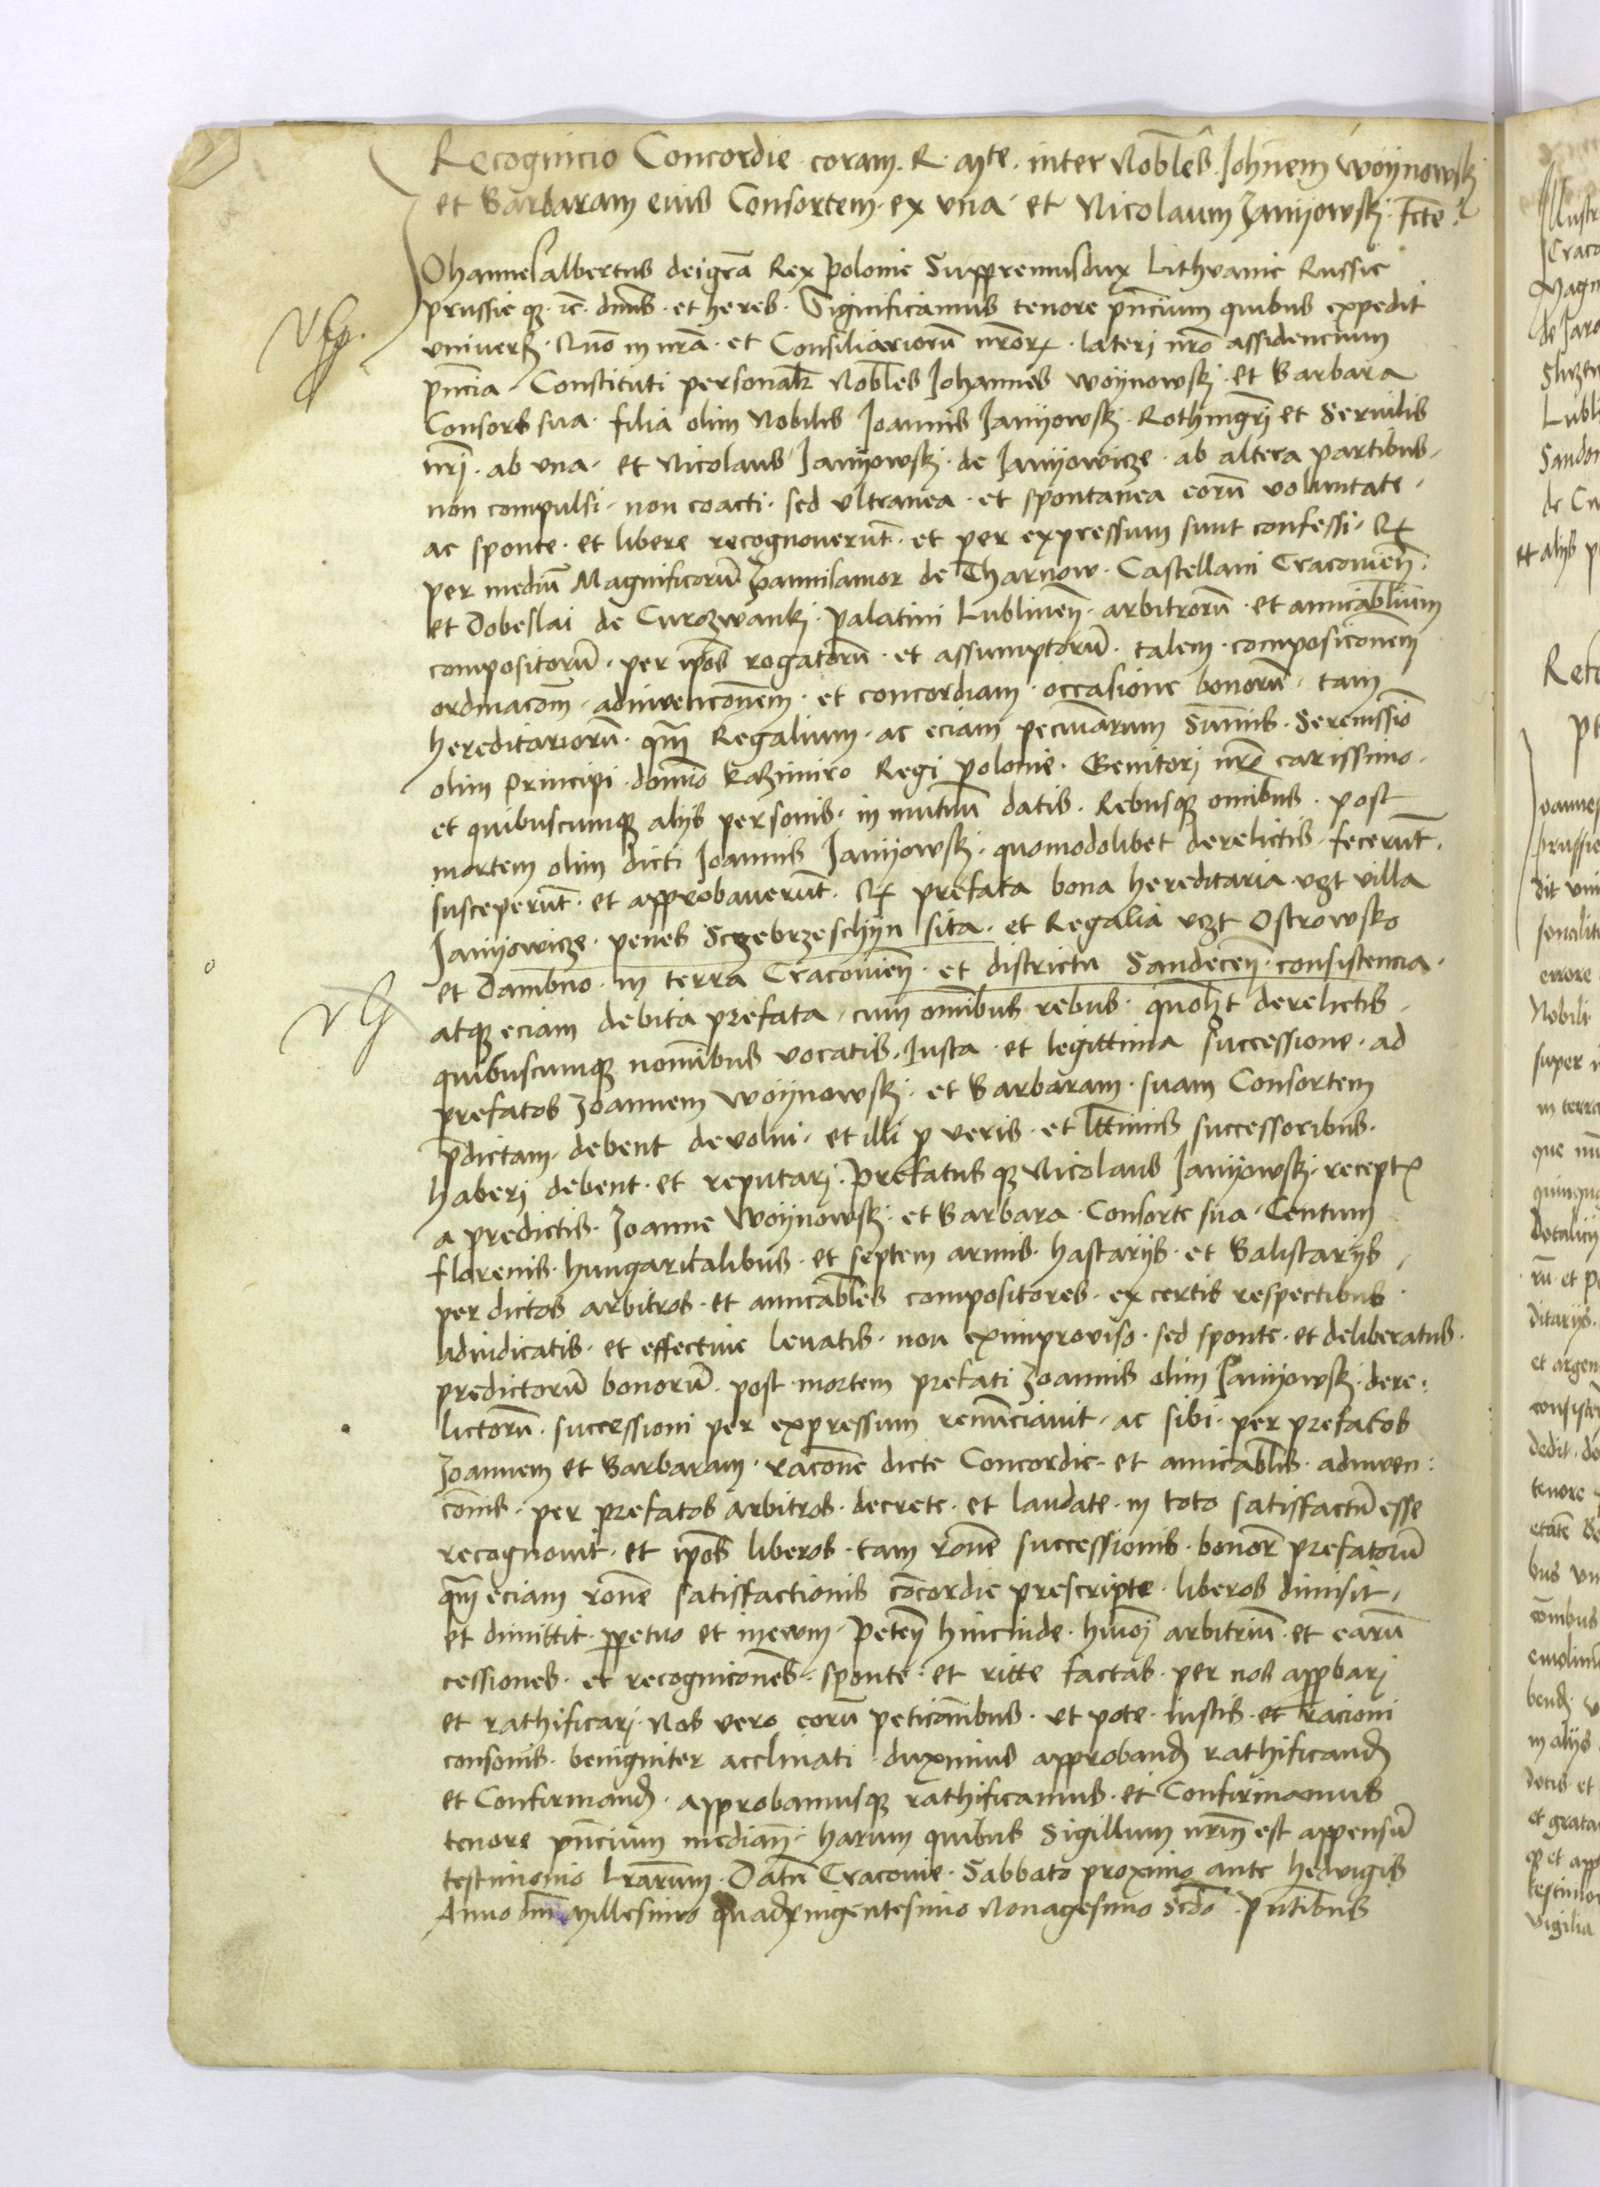 Recognicio Concordie coram R. Mte. inter Nobles Johnem Woynowsky
et Barbaram eius Consortem ex vna et Nicolaum Janyowsky fcte
Johannes albertus dei gra Rex Polonie Suppremus dux Lithvanie Russie
prussie qz zc. dnus et heres. Significamus tenore pncium quibus expedit
vniuers. Quo in nra et Consiliariorum nrorum lateri nro assidencium
pncia Constituti personalr Nobles Johannes Woynowsky et Barbara
Consors sua filia olim Nobilis Joannis Janyowsky Rothmgri et Seruilis
nri. ab vna et Nicolaus Janyowsky de Janyowicze ab altera partibus
non compulsi non coacti sed vltranea et spontanea eoru voluntate
ac sponte et libere recognouerut et per expressum sunt confessi Q
per mediu Magnificoru de Tharnow Castellani Cracouien
et Dobeslai de Curozwanky palatini Lublinen arbitroru et amicablium
compositoru per ipos rogatoru et assumptoru talem composiconem
ordinacom adinuenconem et concordiam occasione bonoru tam
hereditarioru qm Regalium ac eciam pecuniarum Summis Serenissio
olim Principi domino Kazimiro Regi polonie Genitori nro carissimo
et quibuscumqz alys personis in mutuu datis Rebusqz omibus post
mortem olim dicti Joannis Janyowsky quomodolibet derelictis fecerut
susceperut et approbauerut Q prefata bona hereditaria vzt villa
Janyowicze penes Sczebrzeschyn sita et Regalia vzt Ostrowsko
et Dambno in terra Cracouien et districtu Sandecen consistencia
atqz eciam debita prefata cum omibus rebus quolzt derelictis
quibuscumqz nominibus vocatis Justa et legittima successione ad
prefatos Joannem Woynowsky et Barbaram suam Consortem
pdictam debent deuolui et illi p veris et lttimis successoribus
haberi debent et reputari. Prefatusqz Nicolaus Janyowsky recept
a predictis Joanne Woynowsky et Barbara Consorte sua Centum
florenis hungaricalibus et septem armis hastarys et Balistarys
per dictos arbitros et amicables compositores ex certis respectibus
adiudicatis et effectiue leuatis non eximprouiso sed sponte et deliberatus
predictoru bonoru post mortem prefati Joannis olim Janyowsky dere:
lictoru successioni per expressum renunciauit ac sibi per prefatos
Joannem et Barbaram racone dicte Concordie et amicablis adinuen:
conis per prefatos arbitros decrete et laudate in toto satisfactu esse
recognouit et ipos liberos tam rone successionis bonor prefatoru
qm eciam rone satisfactionis concordie prescripte liberos dimisit
et dimittit ppetuo et in ewm Peten hincinde huiom arbitriu et earu
cessiones et recogniciones sponte et ritte factas per nos appbari
et rathificari Nos vero eoru peticonibus vt pote iustis et racioni
consonis benigniter acclinati duximus approband rathificand
et Confirmand approbamusqz rathificamus et Confirmamus
tenore pncium median harum quibus Sigillum nrm est appensu
testimonio lrarum Datu Cracouie Sabbato proximo ante hedvigis
Anno dni Millesimo quadringentesimo Nonagesimo Scdo Pntibus